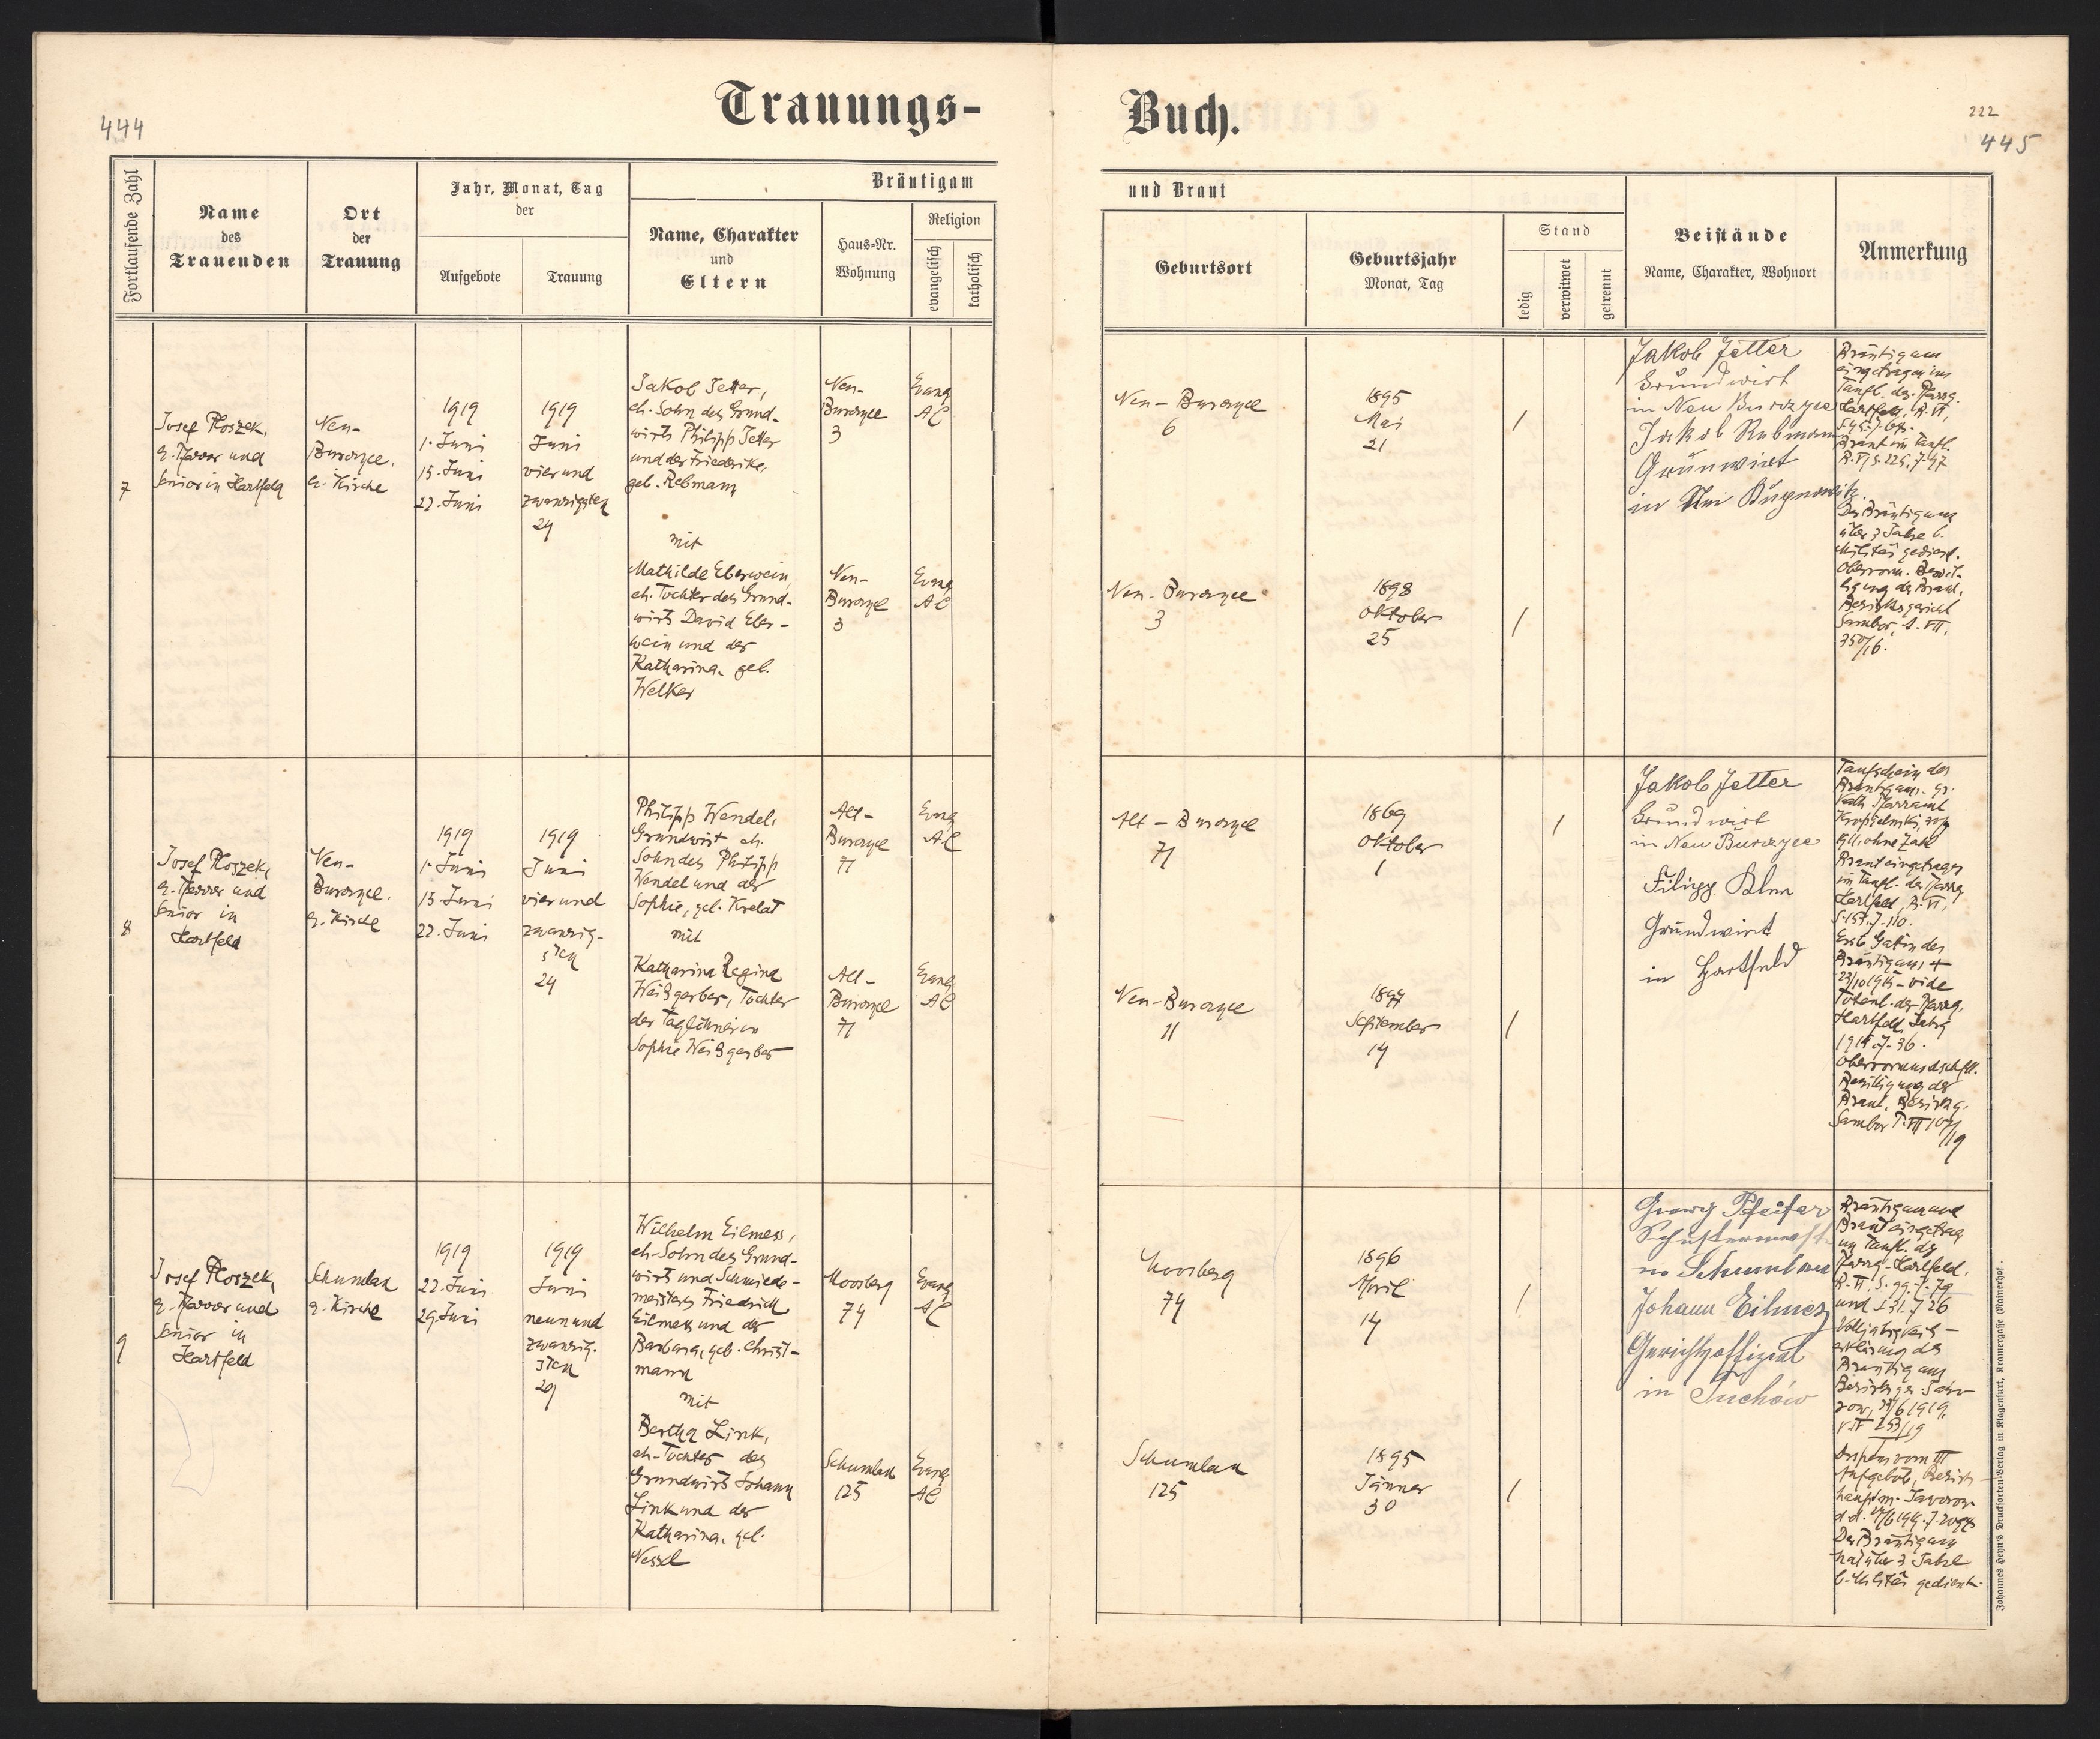 444
Trauungs-
Buch.
222
445
Fortlaufende Zahl
Name
des
Trauenden
Ort
der
Trauung
Jahr, Monat, Tag
der
Aufgebote
Trauung
Bräutigam
Name, Charakter
und
Eltern
Haus-Nr.
Wohnung
Religion
evangelisch
katholisch
und Braut
Geburtsort
Geburtsjahr
Monat, Tag
Stand
ledig
verwitwet
getrennt
Beistände
Name, Charakter, Wohnort
Anmerkung
7
Josef Ploszek,
e. Pfarrer und
Senior in Hartfeld
Neu-
Burczyce.
e. Kirche
1919
1. Juni
15. Juni
22. Juni
1919
Juni
vierund
zwanzigsten
24
Jakob Jetter,
eh. Sohn des Grund-
wirts Philipp Jetter
und der Friederike,
geb. Rebmann
mit
Mathilde Eberwein
eh. Tochter des Grund-
wirts David Eber-
wein und der
Katharina, geb.
Welker
Neu-
Burczyce
3
Evang
AC
Neu-
Burczyce
3
Evang
AC
Neu-Burczyce
6
1895
Mai
21
/
Neu-Burczyce
3
1898
Oktober
25
/
Jakob Jetter
Grundwirt
in Neu Burczyce
Jakob Rebmann
Grünwirt
in
Bräutigam
eingetragen im
Taufb. der Pfarrg.
Hartfeld, B. VI,
Braut im Taufb.
Der Bräutigam
über 3 Jahre b.
Militär gedient.
Obervorm. Bewil-
ligung der Braut,
Bezirksgericht
Sambor,
8
Josef Ploszek,
e. Pfarrer und
Senior in
Hartfeld
Neu-
Burczyce.
e. Kirche
1919
1. Juni
15. Juni
22. Juni
1919
Juni
vierund
zwanzig-
sten
24
Philipp Wendel,
Grundwirt eh.
Sohn des Philipp
Wendel und der
Sophie, geb. Krelat
mit
Katharina Regina
Weißgerber, Tochter
der Taglöhnerin
Sophie Weißgerber
Alt-
Burczyce
71
Evang
AC
Alt-
Burczyce
71
Evang
AC
Alt-Burczyce
71
1869
Oktober
1
/
Neu-Burczyce
11
1897
September
14
/
Jakob Jetter
Grundwirt
in Neu Burczyce
Filipp
Grundwirt
in Hartfeld
Taufschein des
Bräutigams gr.
kath. Pfarramt
ohne Zahl
Braut eingetragen
im Taufb. der Pfarrg.
Hartfeld, B. VI,
Erste Gattin des
Bräutigams +
23/10 1915 - vide
Totenb. der Pfarrg.
Hartfeld, Jahrg
Obervormundschftl.
Bewilligung der
Braut, Bezirksg.
Sambor
9
Josef Ploszek,
e. Pfarrer und
Senior in
Hartfeld
Schumlau
e. Kirche
1919
22. Juni
29. Juni
1919
Juni
neunund
zwanzig-
sten
29
Wilhelm Eilmess,
eh. Sohn des Grund-
wirts und Schmiede-
meisters Friedrich
Eilmess und der
Barbara, geb. Christ-
mann
mit
Bertha Link,
eh. Tochter des
Grundwirts Johann
Link und der
Katharina, geb.
Nessel
Moosberg
74
Evang
AC
Schumlau
125
Evang
AC
Moosberg
74
1896
April
14
/
Schumlau
125
1895
Jänner
30
/
Georg Pfeifer
Schustermeister
in Schumlau
Johann Eilmes
Gerichtsoffizial
in Tuchów
Bräutigam und
Braut eingetrag
im Taufb. der
Pfarrg. Hartfeld.
B. VI. S. 99. J. 79
und S 31. J 26
Volljährigkeits-
erklärung des
Bräutigams
Bezirksger. Jawo-
row,
Dispens vom III
Aufgebot, Bezirks-
hauptm. Jaworow
Der Bräutigam
hat über 3 Jahre
b. Militär gedient.
Johannes Heyn's Drucksorten-Verlag in Klagenfurt, Kramergasse (Rainerhof).